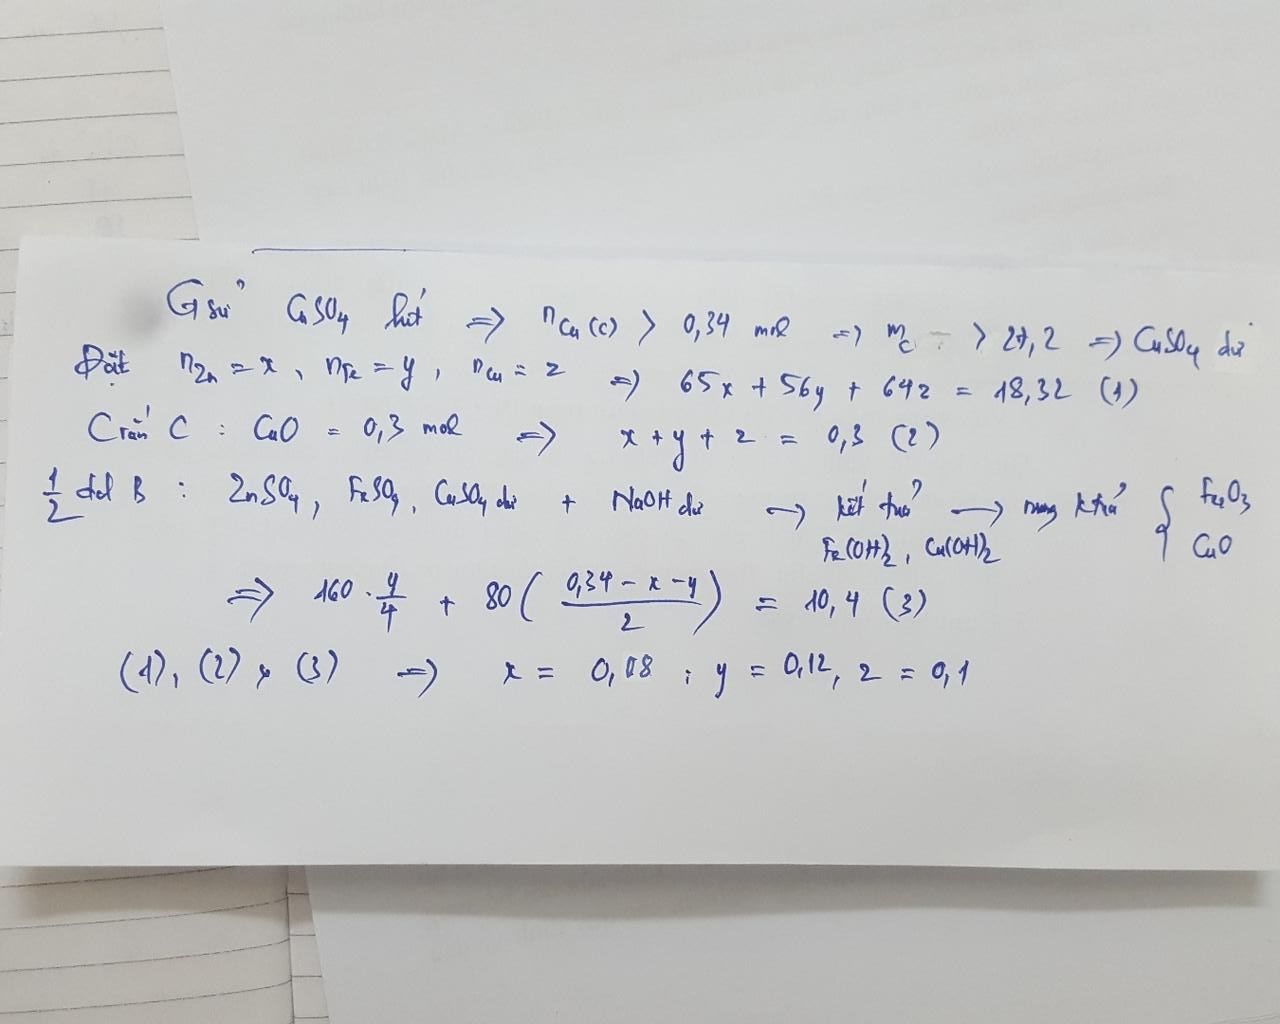 Gsử CuSO4 hết => nCu(c) > 0,34 mol => mc > 27,2 => CuSO4 dư
Đặt nZn = x, nFe = y, nCu = z => 65x + 56y + 64z = 18,32 (1)
C rắn C : CuO = 0,3 mol => x + y + z = 0,3 (2)
1/2 dd B : ZnSO4, FeSO4, CuSO4 dư + NaOH dư -> kết tủa -> nung k khí { Fe2O3
Fe(OH)2, Cu(OH)2 CuO
=> 160 . y/4 + 80 ( (0,34 - x - y)/2 ) = 10,4 (3)
(1), (2), (3) => x = 0,08 ; y = 0,12, z = 0,1